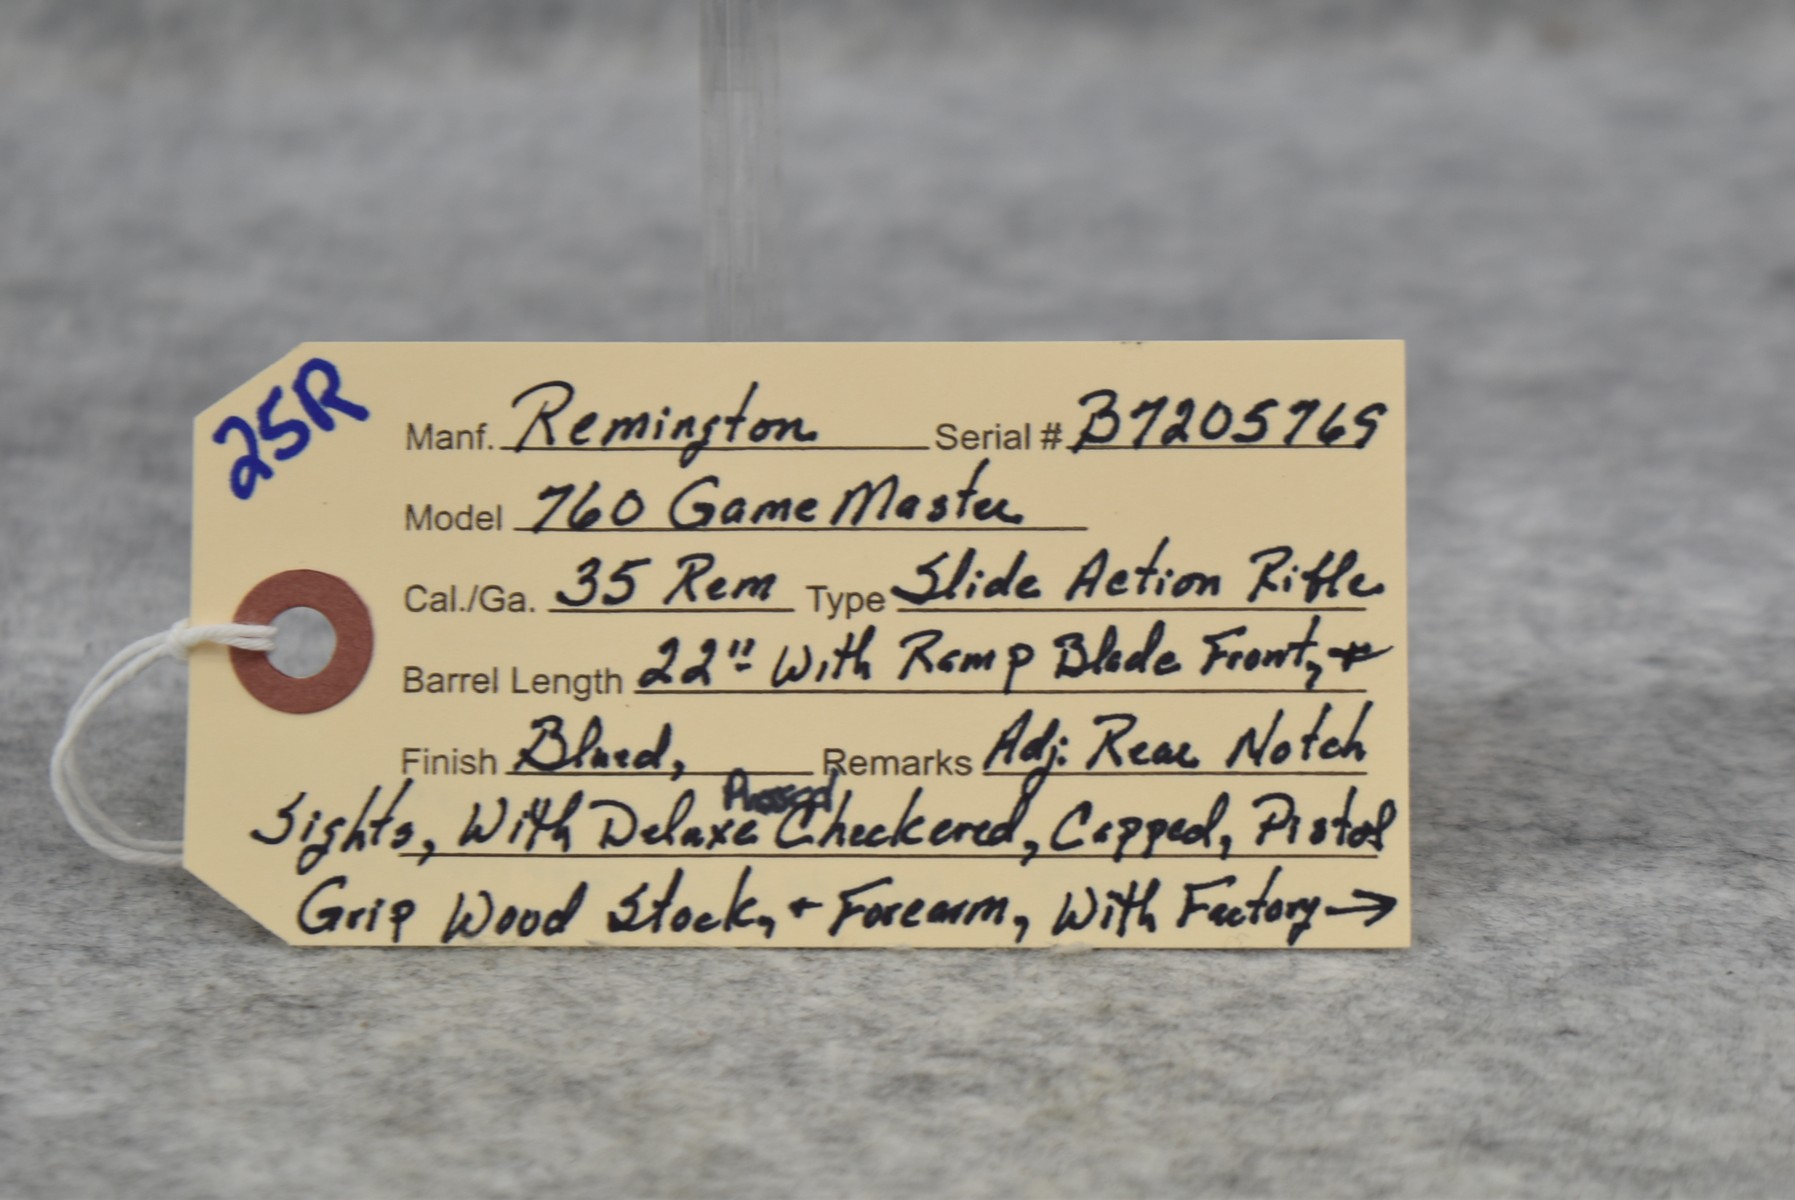 25R
Manf. Remington Serial # B7205769
Model 760 Game Master
Cal./Ga. 35 Rem Type Slide Action Rifle
Barrel Length 22" With Ramp Blade Front, +
Finish Blued, Remarks Adj. Rear Notch
Pressed
Sights, With Deluxe Checkered, Capped, Pistol
Grip Wood Stock, + Forearm, With Factory →